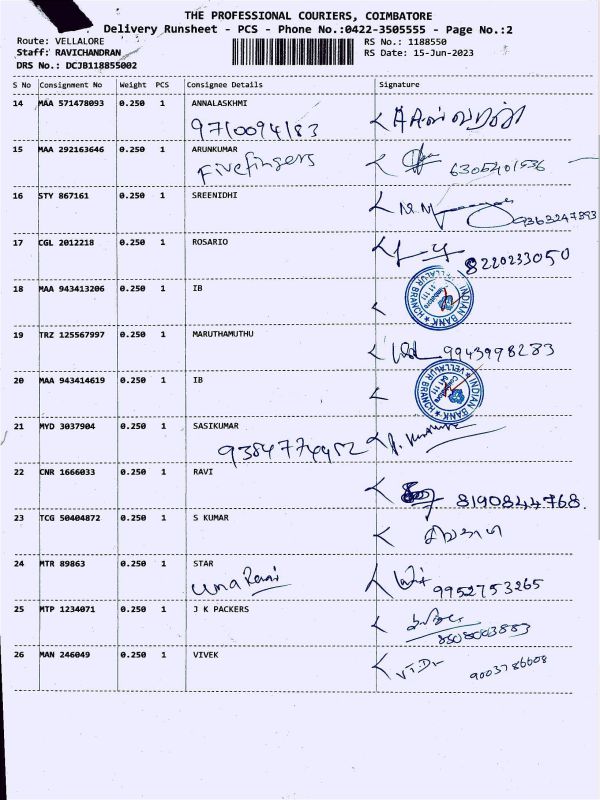 THE PROFESSIONAL COURIERS, COIMBATORE
Delivery Runsheet - PCS - Phone No.:0422-3505555 - Page No.:2
Route: VELLALORE RS No.: 1188550
Staff: RAVICHANDRAN RS Date: 15-Jun-2023
DRS No.: DCJB118855002
S No Consignment No Weight PCS Consignee Details Signature
14 MAA 571478093 0.250 1 ANNALASKHMI
9710094183
15 MAA 292163646 0.250 1 ARUNKUMAR
Fivefingers 6305401536
16 STY 867161 0.250 1 SREENIDHI
9363247893
17 CGL 2012218 0.250 1 ROSARIO
8220233050
18 MAA 943413206 0.250 1 IB
INDIAN BANK VELLALUR BRANCH
19 TRZ 125567997 0.250 1 MARUTHAMUTHU
9943998283
20 MAA 943414619 0.250 1 IB
INDIAN BANK VELLALUR BRANCH
21 MYD 3037904 0.250 1 SASIKUMAR
22 CNR 1666033 0.250 1 RAVI
8190844768.
23 TCG 50404872 0.250 1 S KUMAR
24 MTR 89863 0.250 1 STAR
uma 9952753265
25 MTP 1234071 0.250 1 J K PACKERS
8508003883
26 MAN 246049 0.250 1 VIVEK
9003786608